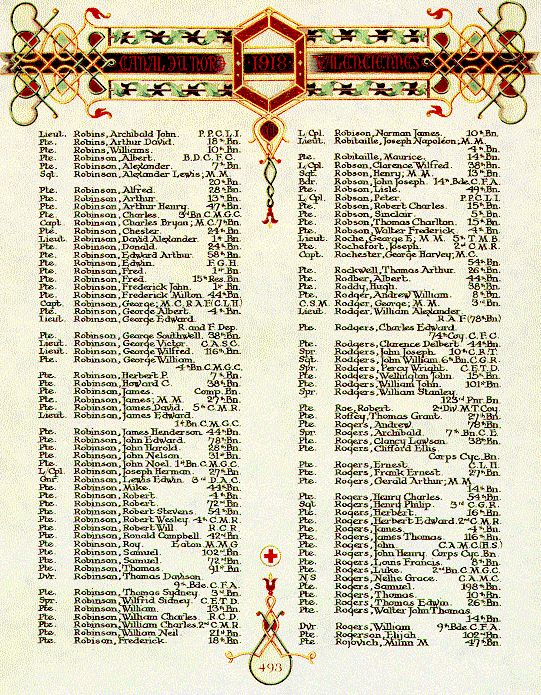 CANAL DU NORD 1918 VALENCIENNES
Lieut. Robins, Archibald John. P.P.C.L.I.
Pte. Robins, Arthur David. 18th Bn.
Pte. Robins, Williams. 10th Bn.
Pte. Robinson, Albert. B.D.C.F.C.
Pte. Robinson, Alexander. 7th Bn.
Sgt. Robinson, Alexander Lewis; M.M.
20th Bn.
Pte. Robinson, Alfred. 28th Bn.
Pte. Robinson, Arthur. 13th Bn.
Pte. Robinson, Arthur Henry. 47th Bn.
Pte. Robinson, Charles. 3rd Bn. C.M.G.C.
Capt. Robinson, Charles Bryan; M.C. 7th Bn.
Pte. Robinson, Chester. 24th Bn.
Lieut. Robinson, David Alexander. 1st Bn.
Pte. Robinson, Donald. 24th Bn.
Pte. Robinson, Edward Arthur. 58th Bn.
Pte. Robinson, Edwin. F.G.H.
Pte. Robinson, Fred. 1st Bn.
Pte. Robinson, Fred. 15th Res. Bn.
Pte. Robinson, Frederick John. 1st Bn.
Pte. Robinson, Frederick Milton. 44th Bn.
Capt. Robinson, George; M.C. R.A.F. (C.L.H.)
Pte. Robinson, George Albert. 4th Bn.
Lieut. Robinson, George Edward.
R. and F. Dep.
Pte. Robinson, George Southwell. 38th Bn.
Lieut. Robinson, George Victor. C.A.S.C.
Lieut. Robinson, George Wilfred. 116th Bn.
Pte. Robinson, George William.
4th Bn. C.M.G.C.
Pte. Robinson, Herbert P. 7th Bn.
Pte. Robinson, Howard C. 38th Bn.
Pte. Robinson, James. Comp. Bn.
Pte. Robinson, James; M.M. 27th Bn.
Pte. Robinson, James, David. 5th C.M.R.
Lieut. Robinson, James Edward.
1st Bn. C.M.G.C.
Pte. Robinson, James Henderson. 44th Bn.
Pte. Robinson, John Edward. 78th Bn.
Pte. Robinson, John Harold. 28th Bn.
Pte. Robinson, John Nelson. 31st Bn.
Pte. Robinson, John Noel. 1st Bn. C.M.G.C.
L/Cpl. Robinson, Joseph Herman. 27th Bn.
Gnr. Robinson, Lewis Edwin. 3rd D.A.C.
Pte. Robinson, Mike. 44th Bn.
Pte. Robinson, Robert. 4th Bn.
Pte. Robinson, Robert. 72nd Bn.
Pte. Robinson, Robert Stevens. 54th Bn.
Pte. Robinson, Robert Wesley. 4th C.M.R.
Pte. Robinson, Robert Will. R.C.R.
Pte. Robinson, Ronald Campbell. 42nd Bn.
Pte. Robinson, Roy. Eaton M.M.G.
Pte. Robinson, Samuel. 102nd Bn.
Pte. Robinson, Samuel. 72nd Bn.
Pte. Robinson, Thomas. 91st Bn.
Dvr. Robinson, Thomas Davison.
9th Bde. C.F.A.
Pte. Robinson, Thomas Sydney. 3rd Bn.
Spr. Robinson, Wilfrid Sidney. C.E.T.D.
Pte. Robinson, William. 13th Bn.
Pte. Robinson, William Charles. R.C.D.
Pte. Robinson, William Charles. 2nd C.M.R.
Pte. Robinson, William Neil. 21st Bn.
Pte. Robison, Frederick. 18th Bn.
L/Cpl. Robison, Norman James. 10th Bn.
Lieut. Robitaille, Joseph Napoléon; M.M.
4th Bn.
Pte. Robitaille, Maurice. 14th Bn.
L/Cpl. Robson, Clarence Wilfred. 38th Bn.
Sgt. Robson, Henry; M.M. 13th Bn.
Bdr. Robson, John Joseph. 14th Bde. C.F.A.
Pte. Robson, Lisle. 49th Bn.
L/Cpl. Robson, Peter. P.P.C.L.I.
Pte. Robson, Robert Charles. 15th Bn.
Pte. Robson, Sinclair. 5th Bn.
Pte. Robson, Thomas Charlton. 15th Bn.
Pte. Robson, Walter Frederick. 4th Bn.
Lieut. Roche, George F.; M.M. 5th T.M.B.
Pte. Rochefort, Joseph. 2nd C.M.R.
Capt. Rochester, George Harvey; M.C.
54th Bn.
Pte. Rockwell, Thomas Arthur. 26th Bn.
Pte. Rodber, Albert. 44th Bn.
Pte. Roddy, Hugh. 38th Bn.
Pte. Rodger, Andrew William. 8th Bn.
C.S.M. Rodger, George; M.M. 3rd Bn.
Lieut. Rodger, William Alexander.
R.A.F. (78th Bn.)
Pte. Rodgers, Charles Edward.
74th Coy. C.F.C.
Pte. Rodgers, Clarence Delbert. 44th Bn.
Spr. Rodgers, John Joseph. 10th C.R.T.
Sgt. Rodgers, John William. 6th Bn. C.G.R.
Spr. Rodgers, Percy Wright. C.E.T.D.
Pte. Rodgers, Wellington John. 15th Bn.
Pte. Rodgers, William John. 101st Bn.
Spr. Rodgers, William Stanley.
123rd Pnr. Bn.
Pte. Roe, Robert. 2nd Div. M.T. Coy.
Pte. Roffey, Thomas Grant. 27th Bn.
Pte. Rogers, Andrew. 78th Bn.
Spr. Rogers, Archibald. 7th Bn. C.E.
Pte. Rogers, Clancy Lawson. 38th Bn.
Pte. Rogers, Clifford Ellis.
Corps Cyc. Bn.
Pte. Rogers, Ernest. C.L.H.
Pte. Rogers, Frank Ernest. 27th Bn.
Pte. Rogers, Gerald Arthur; M.M.
14th Bn.
Pte. Rogers, Henry Charles. 54th Bn.
Sgt. Rogers, Henry Philip. 3rd C.G.R.
Pte. Rogers, Herbert. 16th Bn.
Pte. Rogers, Herbert Edward. 2nd C.M.R.
Pte. Rogers, James. 4th Bn.
Pte. Rogers, James Thomas. 116th Bn.
Pte. Rogers, John. C.A.M.C. (H.S.)
Pte. Rogers, John Henry. Corps Cyc. Bn.
Pte. Rogers, Louis Francis. 8th Bn.
Pte. Rogers, Luke. 2nd Bn. C.M.G.C.
N/S Rogers, Nellie Grace. C.A.M.C.
Pte. Rogers, Samuel. 198th Bn.
Pte. Rogers, Thomas. 10th Bn.
Pte. Rogers, Thomas Edwin. 26th Bn.
Pte. Rogers, Walter John Thomas.
14th Bn.
Dvr. Rogers, William. 9th Bde. C.F.A.
Pte. Rogerson, Elijah. 102nd Bn.
Pte. Rojovich, Milun M. 47th Bn.
493